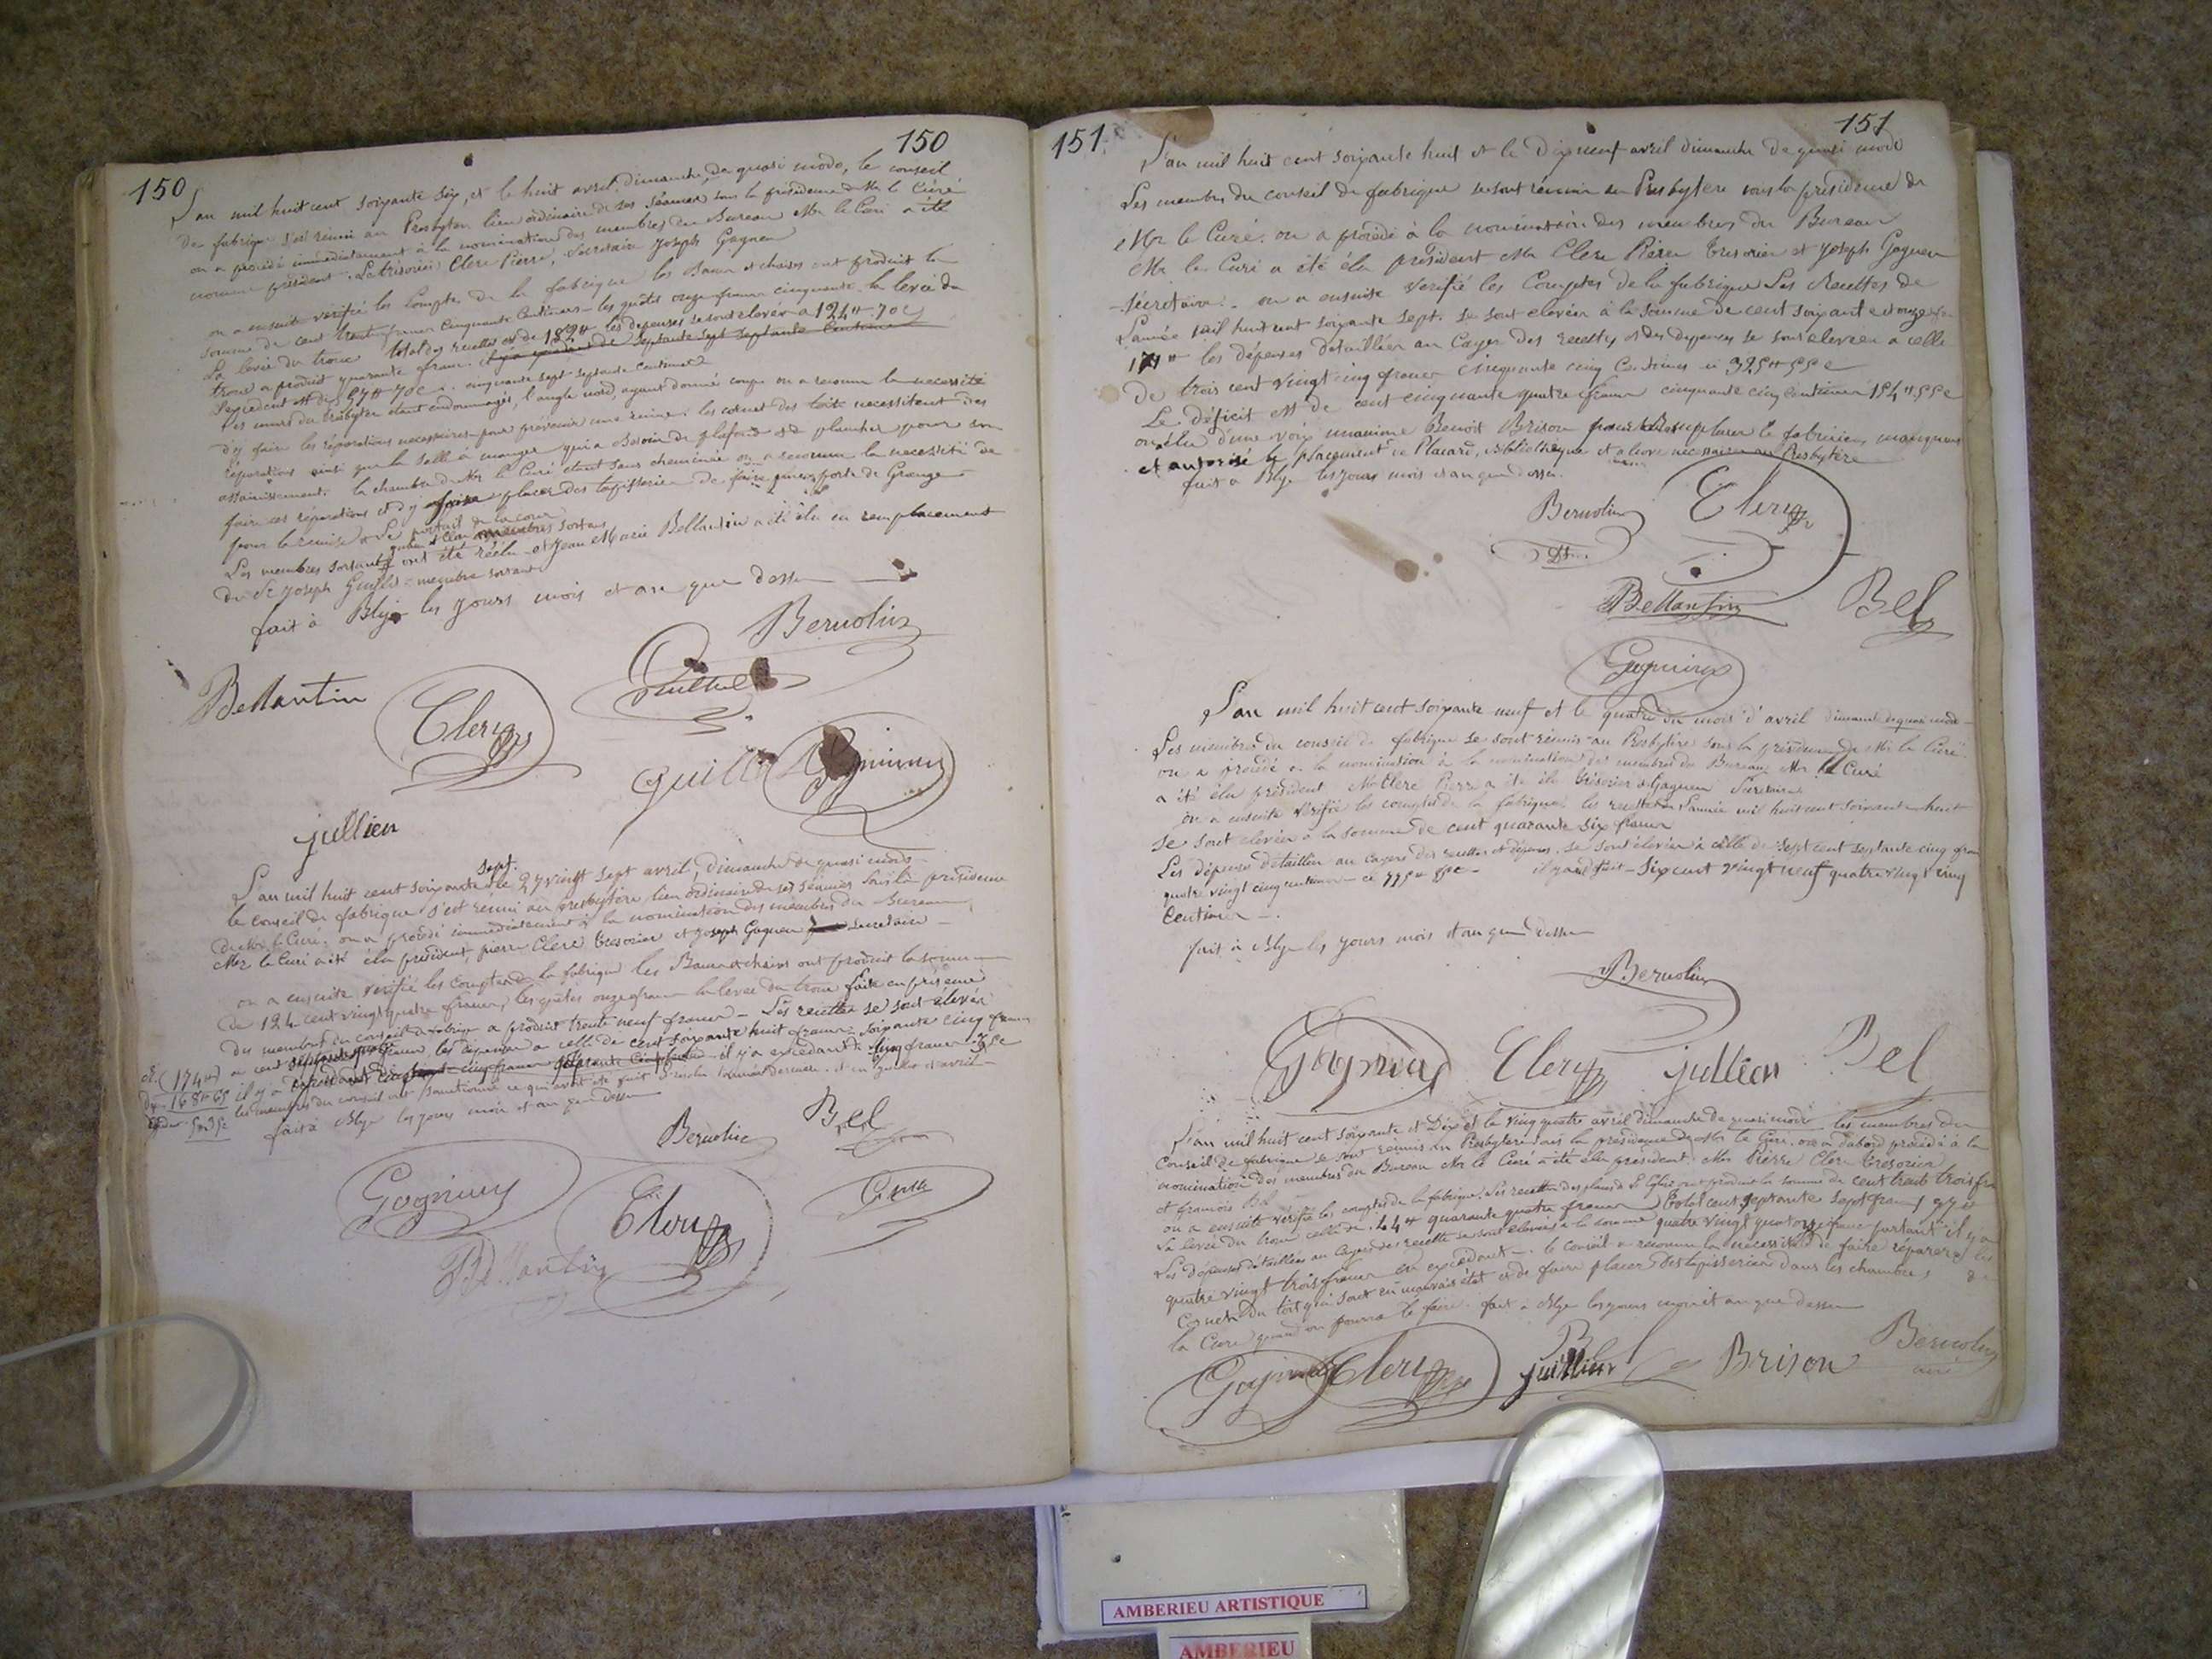 150
150
L'an mil huit cent soixante six, et le huit avril dimanche de quasi modo, le conseil
de fabrique s'est réuni au Presbytère lieu ordinaire de ses séances sous la présidence de Mr le Curé
on a procédé immédiatement à la nomination des membres du Bureau Mr le Curé a été
nommé président. Le trésorier Clerc Pierre, Secrétaire Joseph Gagneu
on a ensuite vérifié les Comptes de la fabrique les Bancs et chaises ont produit la
somme de cent trente francs cinquante centimes – les quêtes onze francs cinquante. la levée du
tronc a produit quarante francs. total des recettes est de 182# les dépenses se sont élevées à 124#-70c
L'excédent est de 57#70c. cinquante sept septante centimes
Les murs du Presbytère étant endommagés, l'angle nord, ayant donné coupe on a reconnu la nécessité
d'y faire les réparations nécessaires pour prévenir une ruine. les cornet des toits nécessitent des
réparations ainsi que la salle à manger qui a Besoin de plafond et de plancher pour son
assainissement. la chambre de Mr le Curé étant sans cheminée on a reconnu la nécessité de
faire ces réparations et d'y faire placer des tapisseries de faire porte de Grange
pour la remise et le portail de la cour
Les membres sortants ont été réélu et Jean Marie Bellantin a été élu en remplacement
du Sr Joseph membre sortant
fait à Blye les jours mois et an que dessus
Bernolin
Bellantin Clerc
Guillet
Gagnieux
jullien
L'an mil huit cent soixante sept. le 27 vingt sept avril, dimanche de quasi modo
le conseil de fabrique s'est réuni au presbytère lieu ordinaire de ses séances sous la présidence
de Mr le Curé. on a procédé immédiatement à la nomination des membres du Bureau
Mr le Curé a été élu président, pierre Clerc trésorier et joseph Gagneu secrétaire
on a ensuite vérifié les Comptes de la fabrique les Bancs et chaises ont produit la somme
de 124 cent vingt quatre francs, les quêtes onze francs la levée du tronc faite en présence
des membres du conseil de fabrique a produit trente neuf francs – Les recettes se sont élevées
R. (174#) à cent francs, les dépenses à celle de cent soixante huit francs soixante cinq
D. 168#65 il y a excédant de cinq francs 35c
5#35c les membres du conseil ont sanctionné ce qui avait été fait
fait à Blye les jours mois et an que dessus
Bernolin Bel
Gagnieux Clerc
Bellantin
151
151
L'an mil huit cent soixante huit et le dix neuf avril dimanche de quasi modo
Les membres du conseil de fabrique se sont réunis au Presbytère sous la présidence de
Mr le Curé. on a procédé à la nomination des membres du Bureau
Mr le Curé a été élu président Mr Clerc Pierre trésorier et Joseph Gagneu
secrétaire. on a ensuite vérifié les Comptes de la fabrique Les Recettes de
L'année mil huit cent soixante sept. se sont élevées à la somme de cent soixante et onze
171# les dépenses détaillées au Cayer des recettes et des dépenses se sont élevées à celle
de trois cent vingt cinq francs cinquante cinq centimes ci 325#55c
Le déficit est de cent cinquante quatre francs cinquante cinq centimes 154#55c
on a élu d'une voix unanime Benoit Brison pour remplacer le fabricien manquant
et autorisé le placement de Placard, Bibliothèque et au Presbytère
fait à Blye les jours mois et an que dessus.
Bernolin Clerc
Bellantin Bel
Gagnieux
L'an mil huit cent soixante neuf et le quatre du mois d'avril dimanche de quasi modo
Les membres du conseil de fabrique se sont réunis au Presbytère sous la présidence de Mr le Curé
on a procédé à la nomination à la nomination des membres du Bureau Mr le Curé
a été élu président Mr Clerc Pierre a été élu trésorier & Gagneu Secrétaire
on a ensuite vérifié les comptes de la fabrique. les recettes de l'année mil huit cent soixante huit
se sont élevées à la somme de cent quarante six francs
Les dépenses détaillées au cayer des recettes et dépenses se sont élevées à celle de sept cent septante cinq francs
quatre vingt cinq centimes ci 775#85c il y a déficit – six cent vingt neuf quatre vingt cinq
Centimes –.
fait à Blye les jours mois et an que dessus
Bernolin
Gagnieux Clerc jullien Bel
L'an mil huit cent soixante et dix et le vingt quatre avril dimanche de quasi modo les membres du
Conseil de fabrique se sont réunis au Presbytère sous la présidence de Mr le Curé. on a d'abord procédé à la
nomination des membres du Bureau Mr le Curé a été élu président. Mr Pierre Clerc trésorier
et françois Bel
on a ensuite vérifié les comptes de la fabrique. Les recettes des places à l'église ont produit la somme de cent trente trois fr
La levée du tronc celle de 44# quarante quatre francs total cent septante sept francs
Les dépenses détaillées au Cayer des recettes se sont élevées à la somme quatre vingt quatorze francs partant il y a
quatre vingt trois francs en excédant –. le conseil a reconnu la nécessité de faire réparer les
cornets du toit qui sont en mauvais état et de faire placer des tapisseries dans les chambres de
la Cure quand on pourra le faire. fait à Blye les jours mois et an que dessus
Gagnieux Clerc Bel jullien Brison Bernolin
curé
AMBERIEU ARTISTIQUE
AMBERIEU